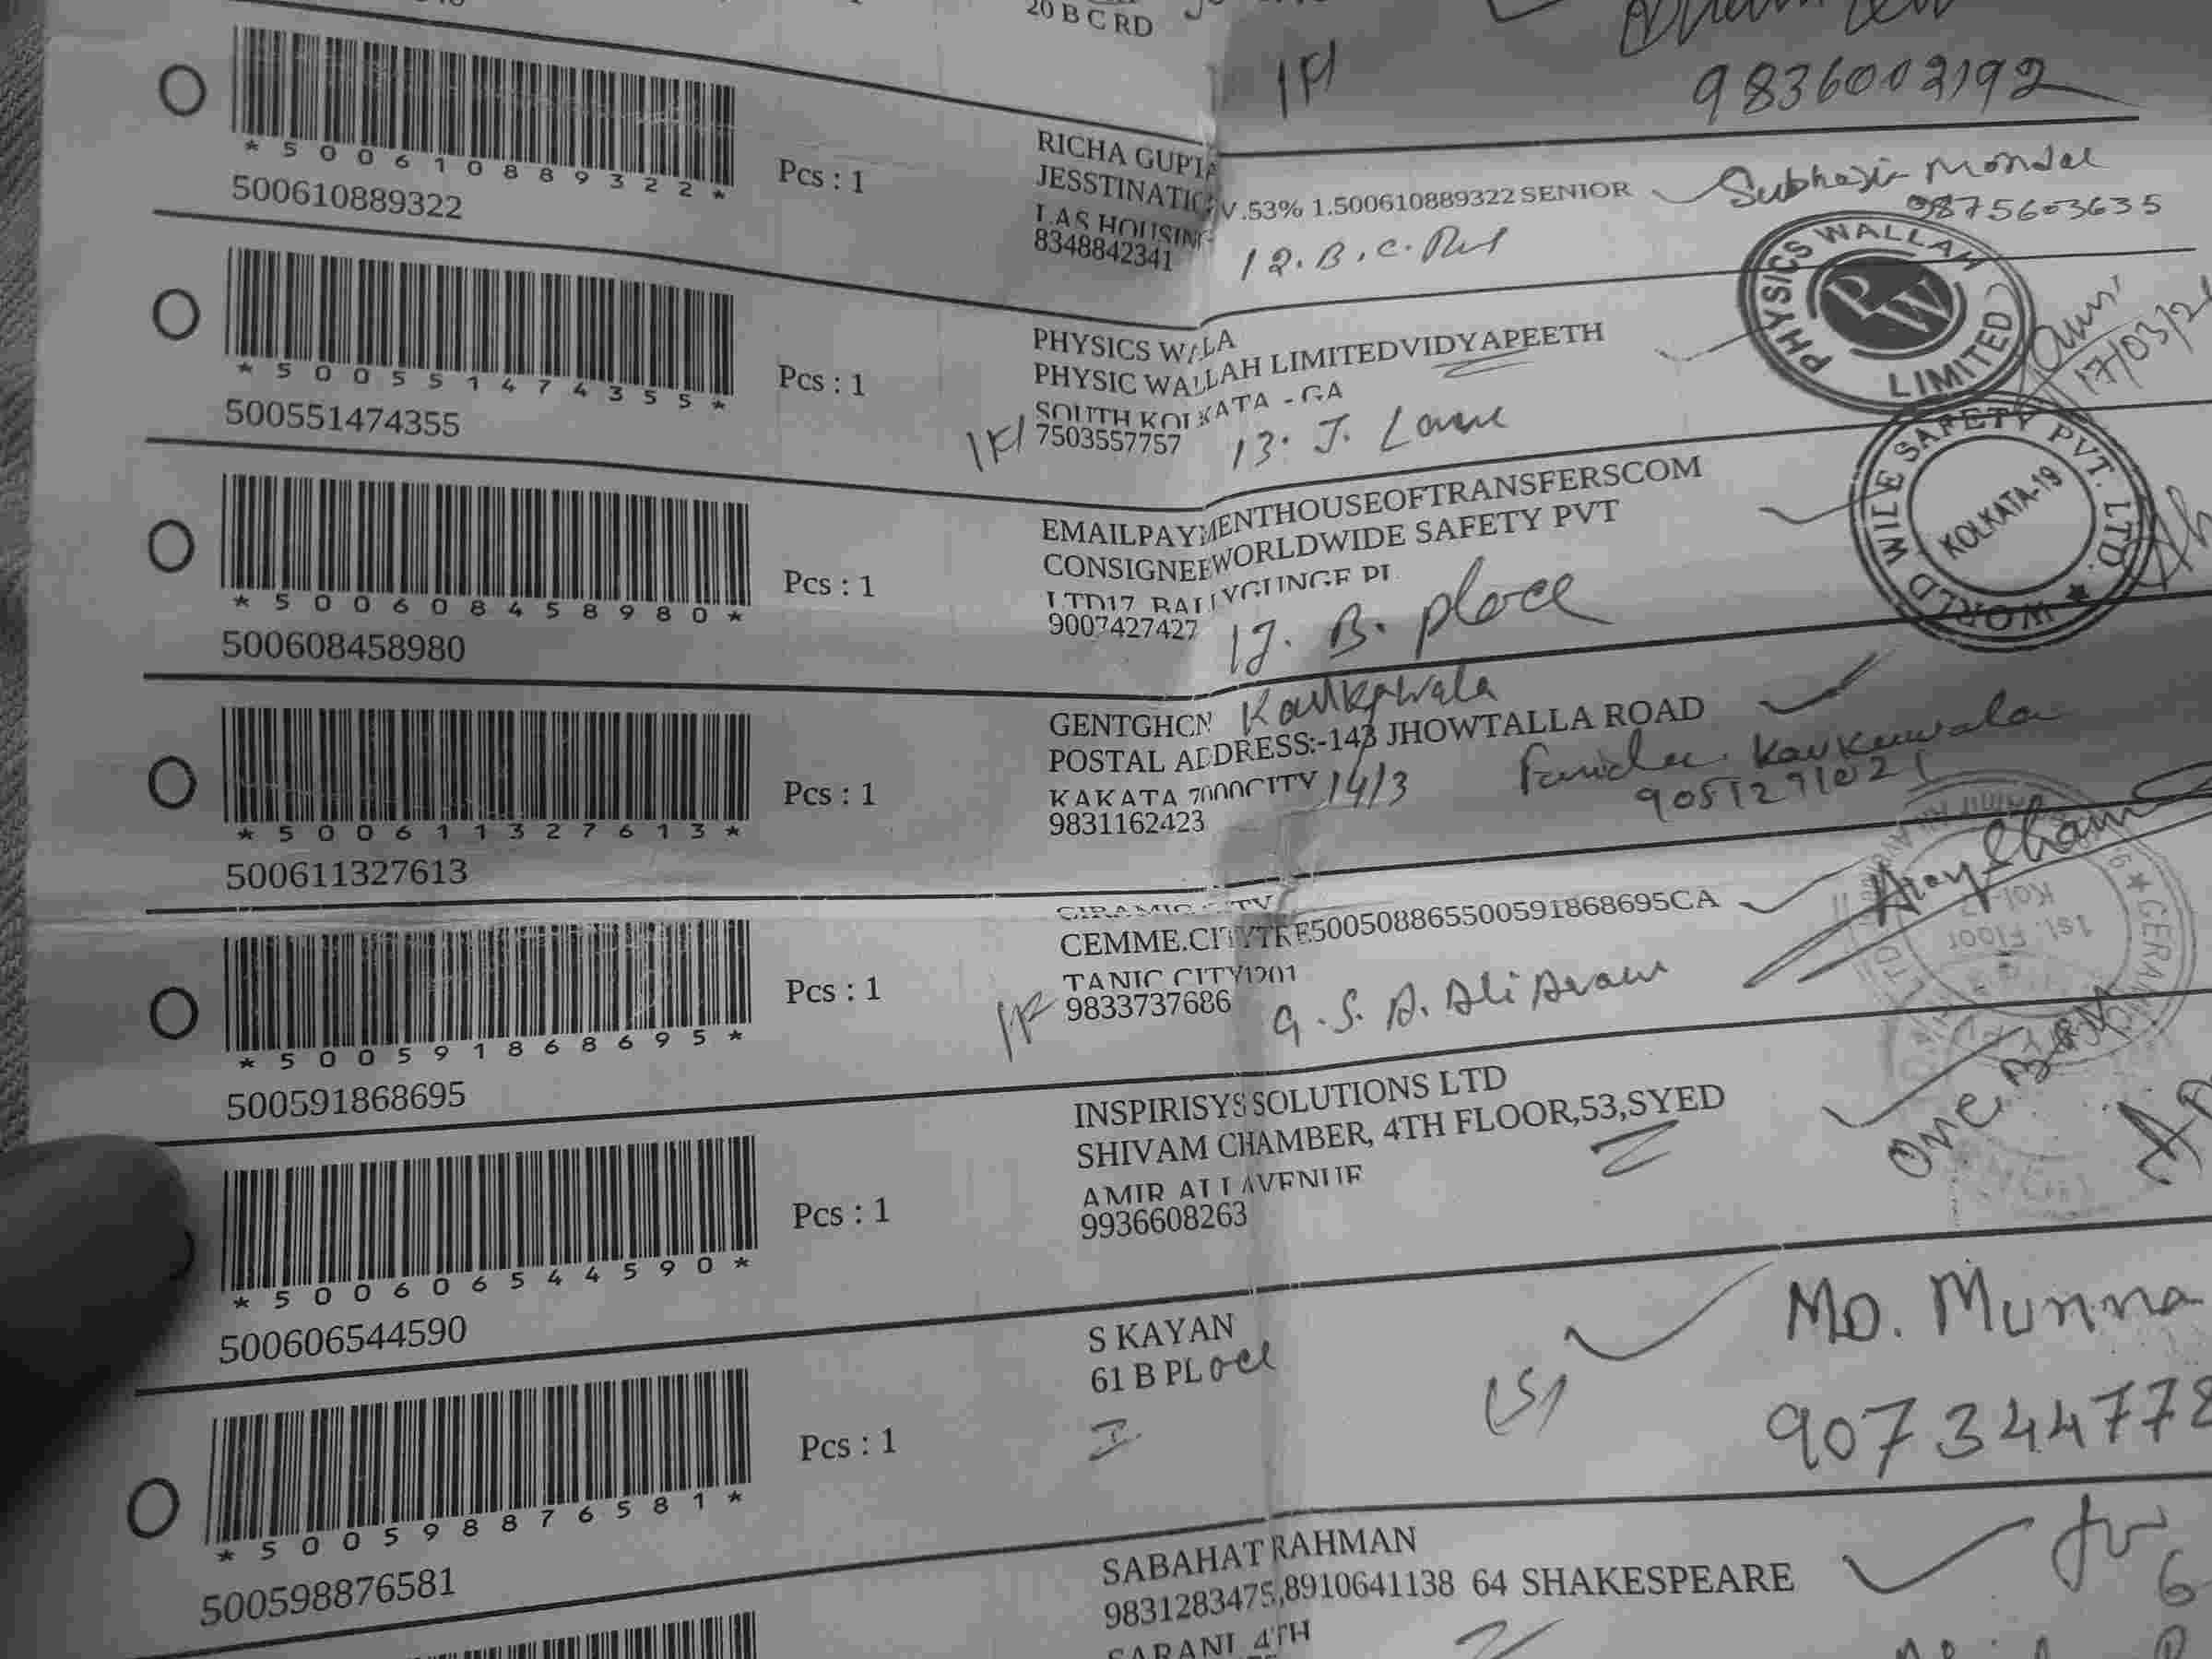 20 B C RD
1F1
9836002192
*500610889322*
500610889322
Pcs : 1
RICHA GUPTA
JESSTINATIO V.53% 1.500610889322 SENIOR
LAS HOUSING
8348842341
12. B. C. Rd
Subhasis Mondal
9875603635
PHYSICS WALLAH LIMITED
PW
*500551474355*
500551474355
Pcs : 1
PHYSICS WALA
PHYSIC WALLAH LIMITEDVIDYAPEETH
SOUTH KOLKATA - GA
7503557757
13. J. Lane
17/03/2
*500608458980*
500608458980
Pcs : 1
EMAILPAYMENTHOUSEOFTRANSFERSCOM
CONSIGNEEWORLDWIDE SAFETY PVT
LTD17 BALLYGUNGE PL
9007427427
17. B. place
WORLD WILE SAFETY PVT. LTD.
KOLKATA-19
*500611327613*
500611327613
Pcs : 1
GENTGHCN Kaukawala
POSTAL ADDRESS:-143 JHOWTALLA ROAD
KAKATA 7000CITY 14/3
9831162423
Farida Kaukawala
9051291021
*500591868695*
500591868695
Pcs : 1
CEMME.CITYTRE500508865500591868695CA
TANIC CITY1201
9833737686
9. S. A. Ali Avanue
1st. Floor
*500606544590*
500606544590
Pcs : 1
INSPIRISYS SOLUTIONS LTD
SHIVAM CHAMBER, 4TH FLOOR,53,SYED
AMIR ALI AVENUE
9936608263
One
*500598876581*
500598876581
Pcs : 1
S KAYAN
61 B PLace
(S)
Mo. Munna
907344778
SABAHAT RAHMAN
9831283475,8910641138 64 SHAKESPEARE
SARANI 4TH